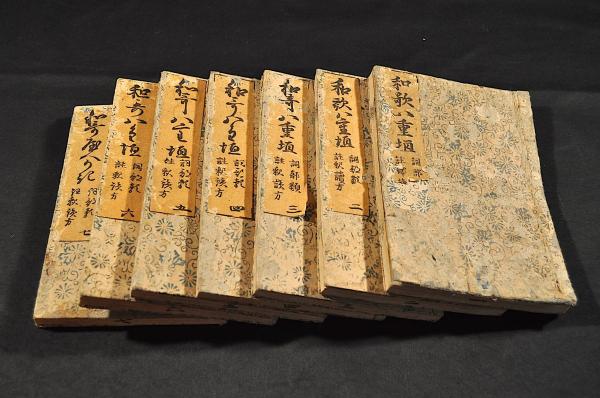 和歌八重垣 詞部
註釈
和歌八重垣 詞部類
註釈読方 二
和哥八重垣 詞部類
註釈読方 三
和哥八重垣 詞部類
註釈読方 四
和哥八重垣 詞部類
註釈読方 五
和哥八重垣 詞部類
註釈読方 六
和哥 詞部類
註釈読方 七